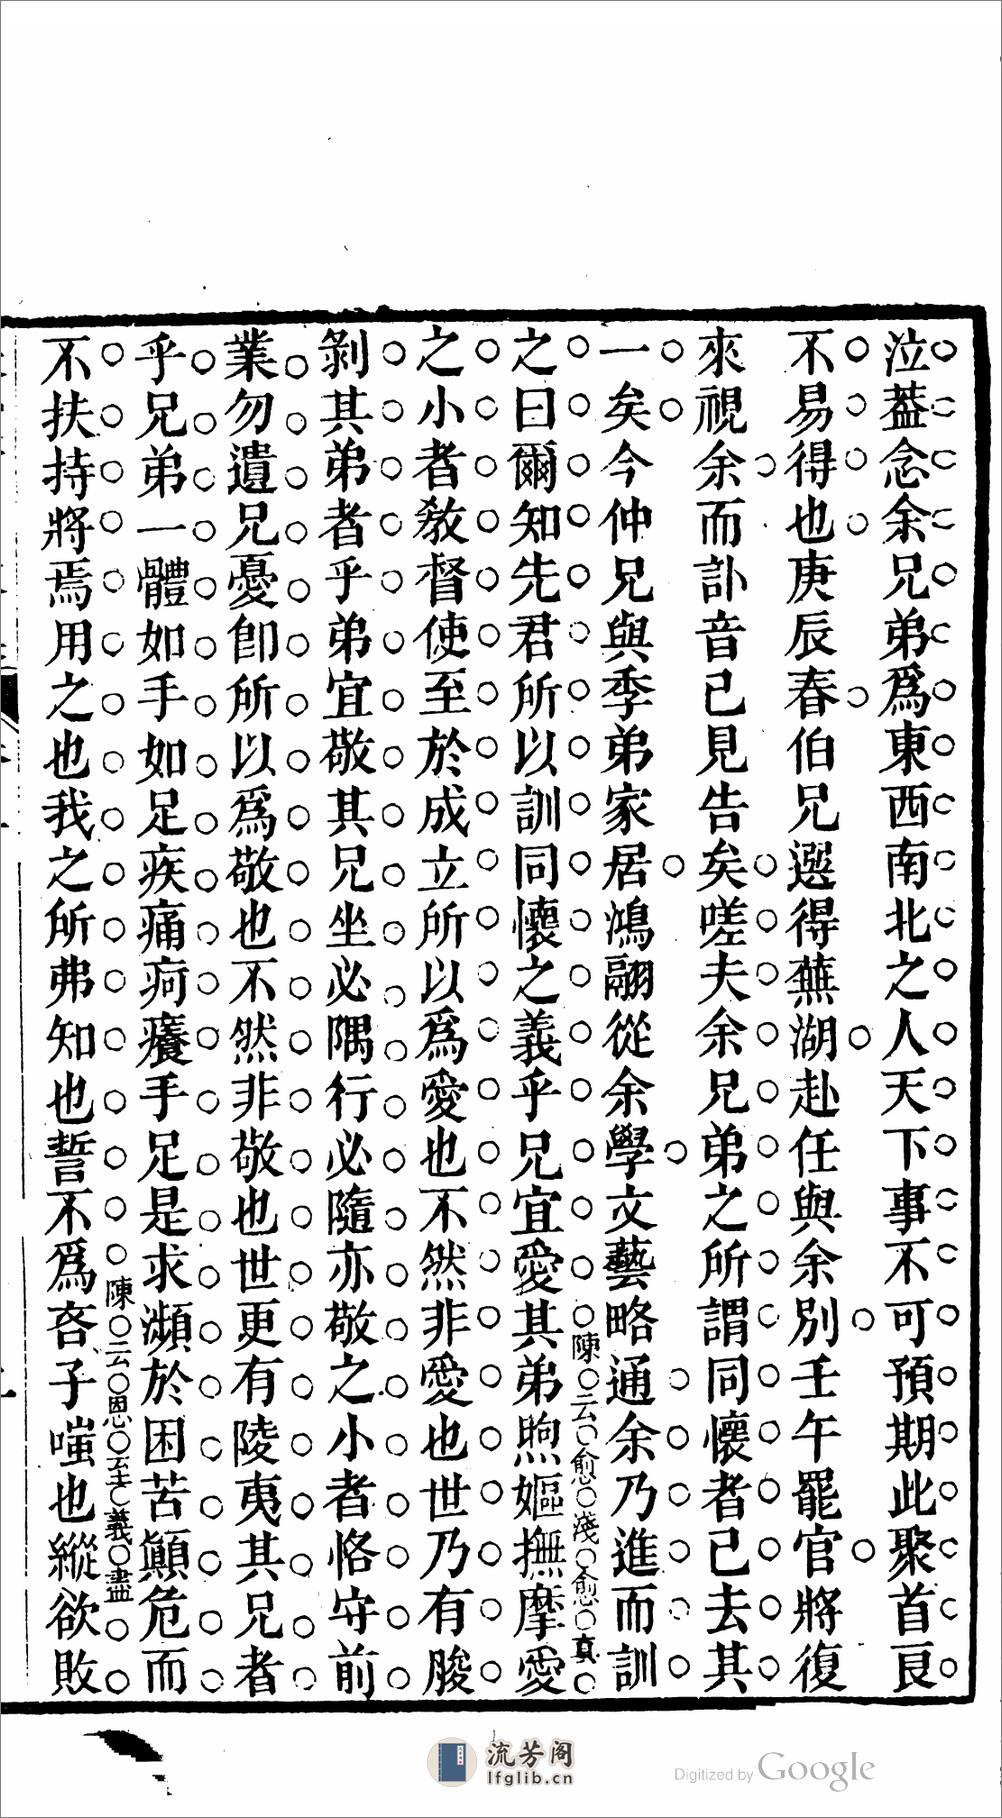 泣葢念余兄弟爲東西南北之人天下事不可預期此聚首良
不易得也庚辰春伯兄選得蕪湖赴任與余別壬午罷官將復
來視余而訃音已見告矣嗟夫余兄弟之所謂同懷者已去其
一矣今仲兄與季弟家居鴻翮從余學文藝略通余乃進而訓
之曰爾知先君所以訓同懷之義乎兄宜愛其弟煦嫗撫摩愛
陳云愈淺愈真
之小者敎督使至於成立所以爲愛也不然非愛也世乃有朘
剝其弟者乎弟宜敬其兄坐必隅行必隨亦敬之小者恪守前
業勿遺兄憂卽所以爲敬也不然非敬也世更有陵夷其兄者
乎兄弟一體如手如足疾痛疴癢手足是求瀕於困苦顚危而
不扶持將焉用之也我之所弗知也誓不爲吝子嗤也縱欲敗
陳云恩至義盡
流芳阁
lfglib.cn
Digitized by Google